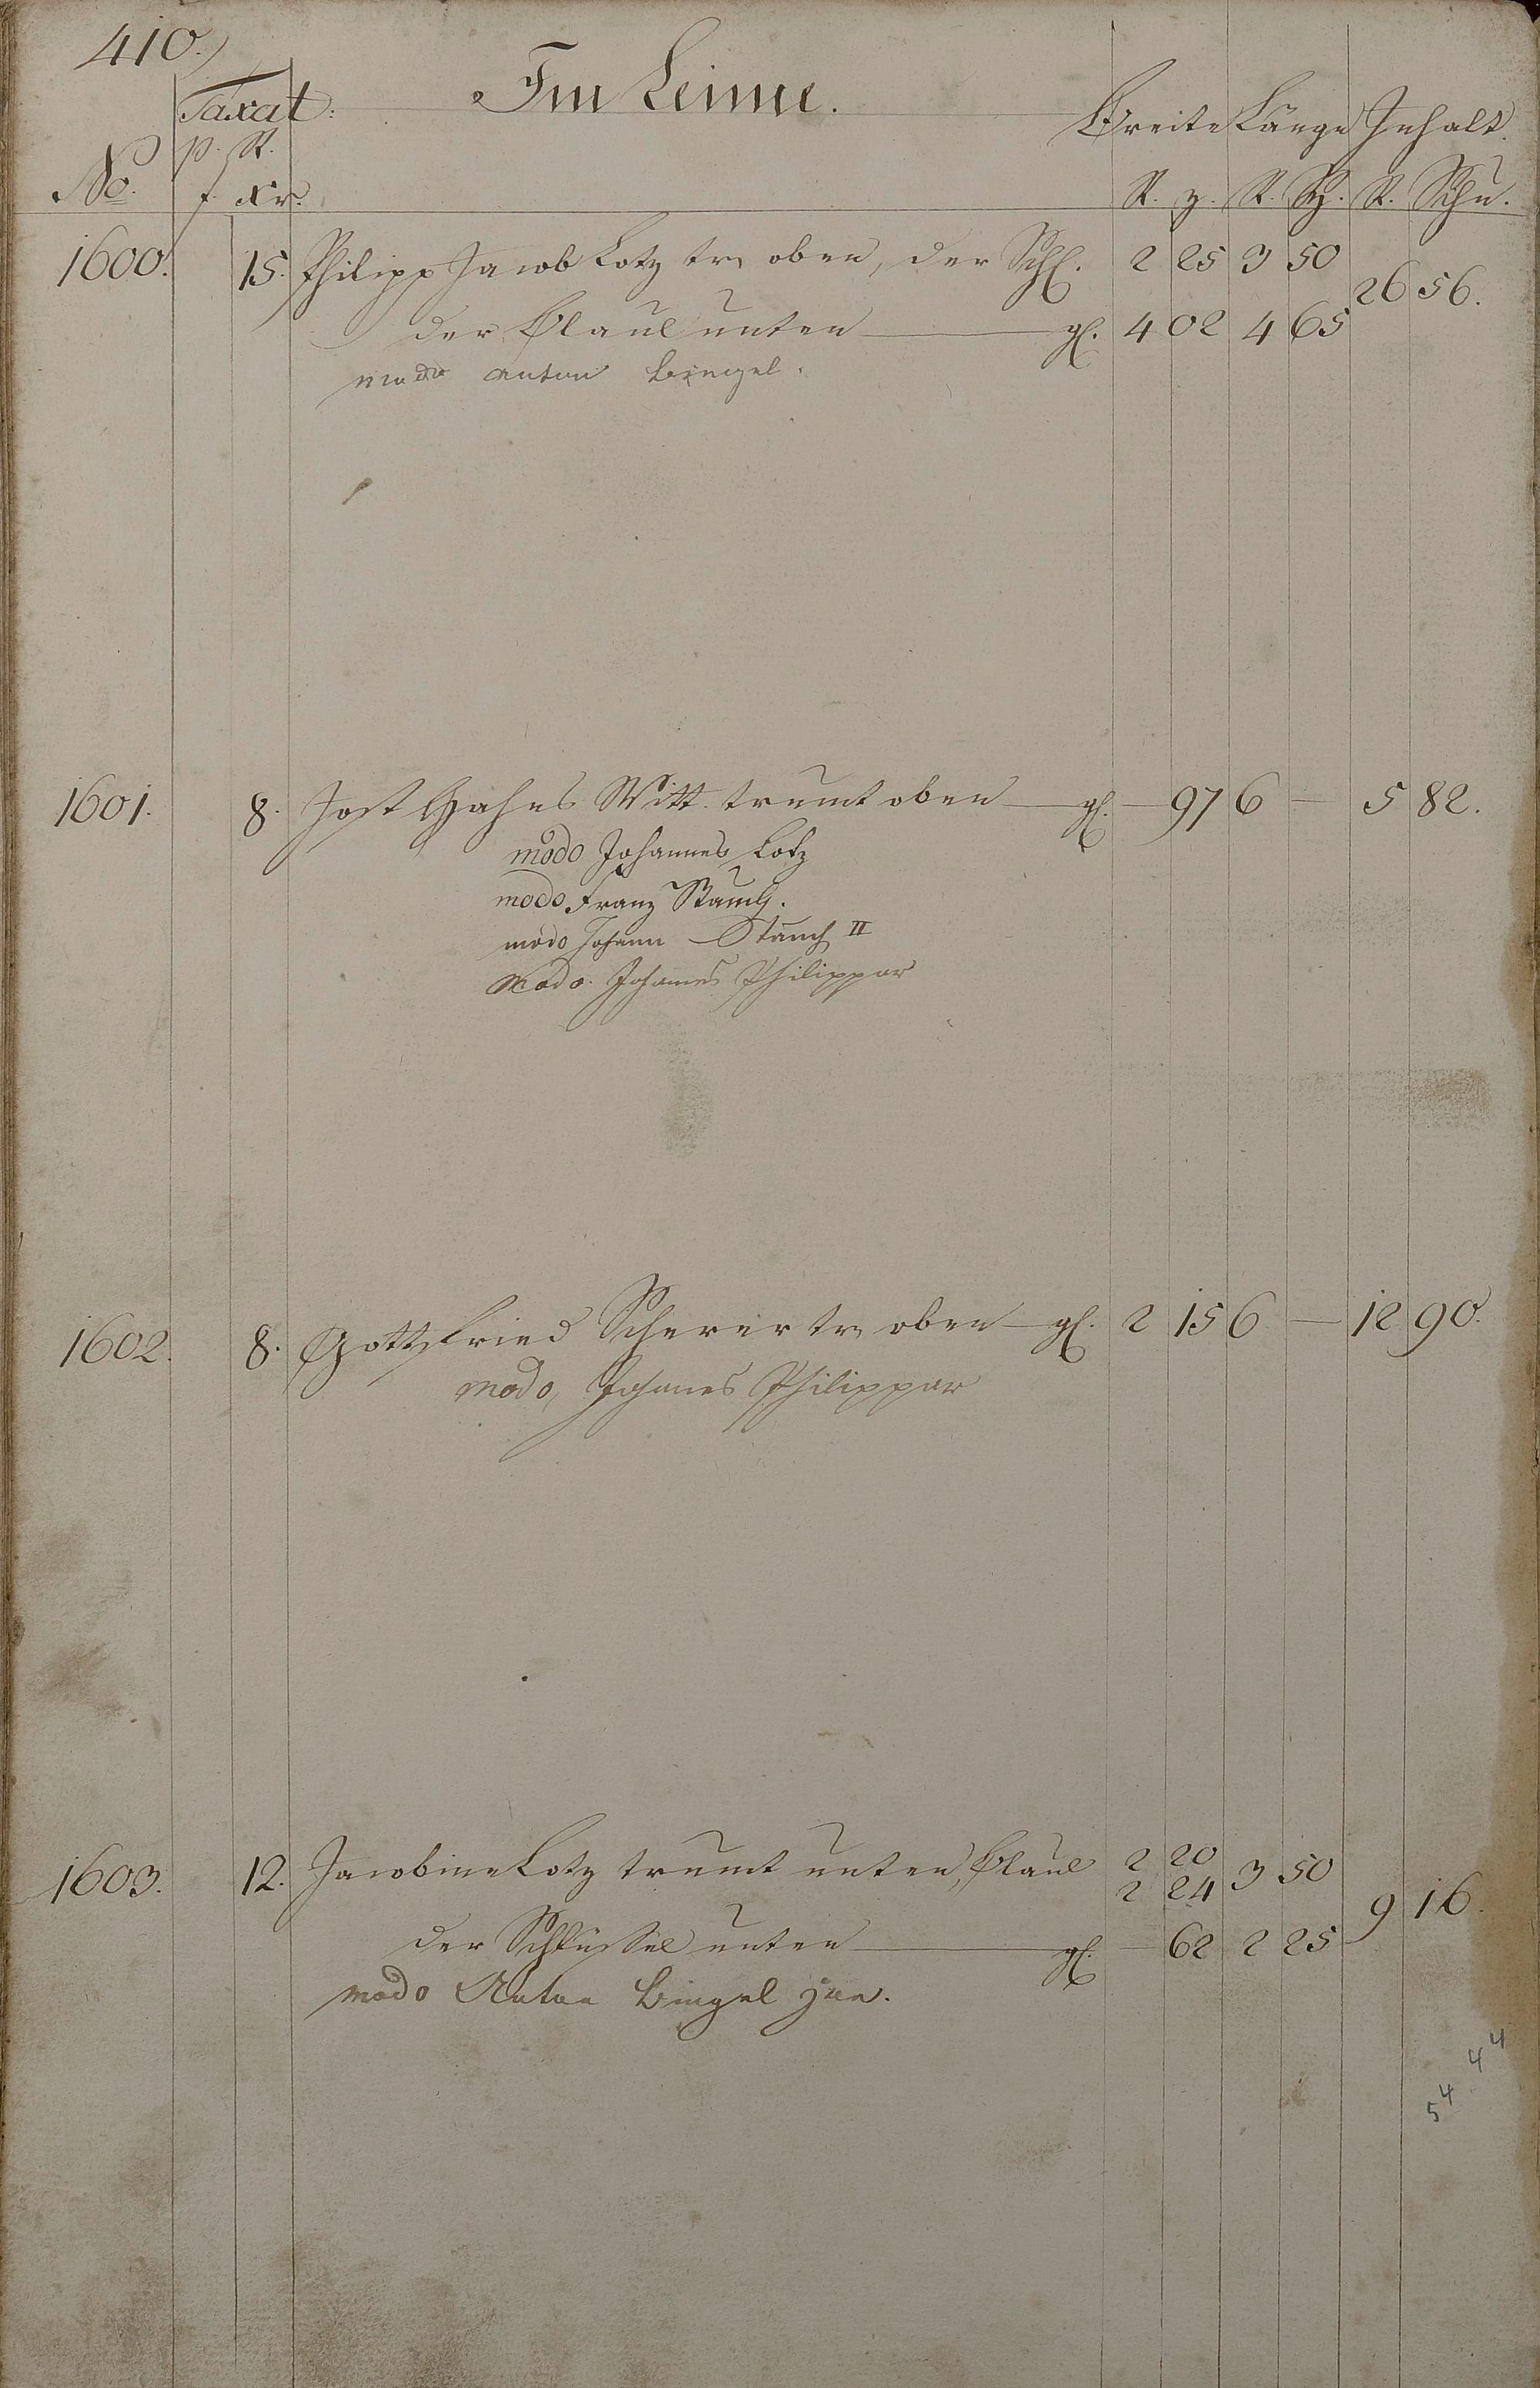 410.
Im Leimie.
Taxat:
Breite Länge Inhalt.
p. R.
No. f. xr. R. z. R. Sch. R. Schu.
1600. 15. Philipp Jacob Lotz tr. oben, der Schl. 2 25 3 50
26 56.
der Blaul unten gl. 4 02 4 65
modo Anton Bingel.
1601. 8. Jost Hahns Witt. trumt oben gl. — 97 6 — 5 82.
modo Johannes Lotz
modo Franz Stauch.
modo Johann Stauch II
modo Johannes Philippar
1602. 8. Gottfried Scherer tr. oben gl. 2 15 6 — 12 90.
modo, Johannes Philippar
2 20
1603. 12. Jacobine Lotz trumt unten, Blaul 3 50
2 24
9 16.
der Schlüssel unten gl. — 62 2 25
modo Anton Bingel jun.
4 4
5 4